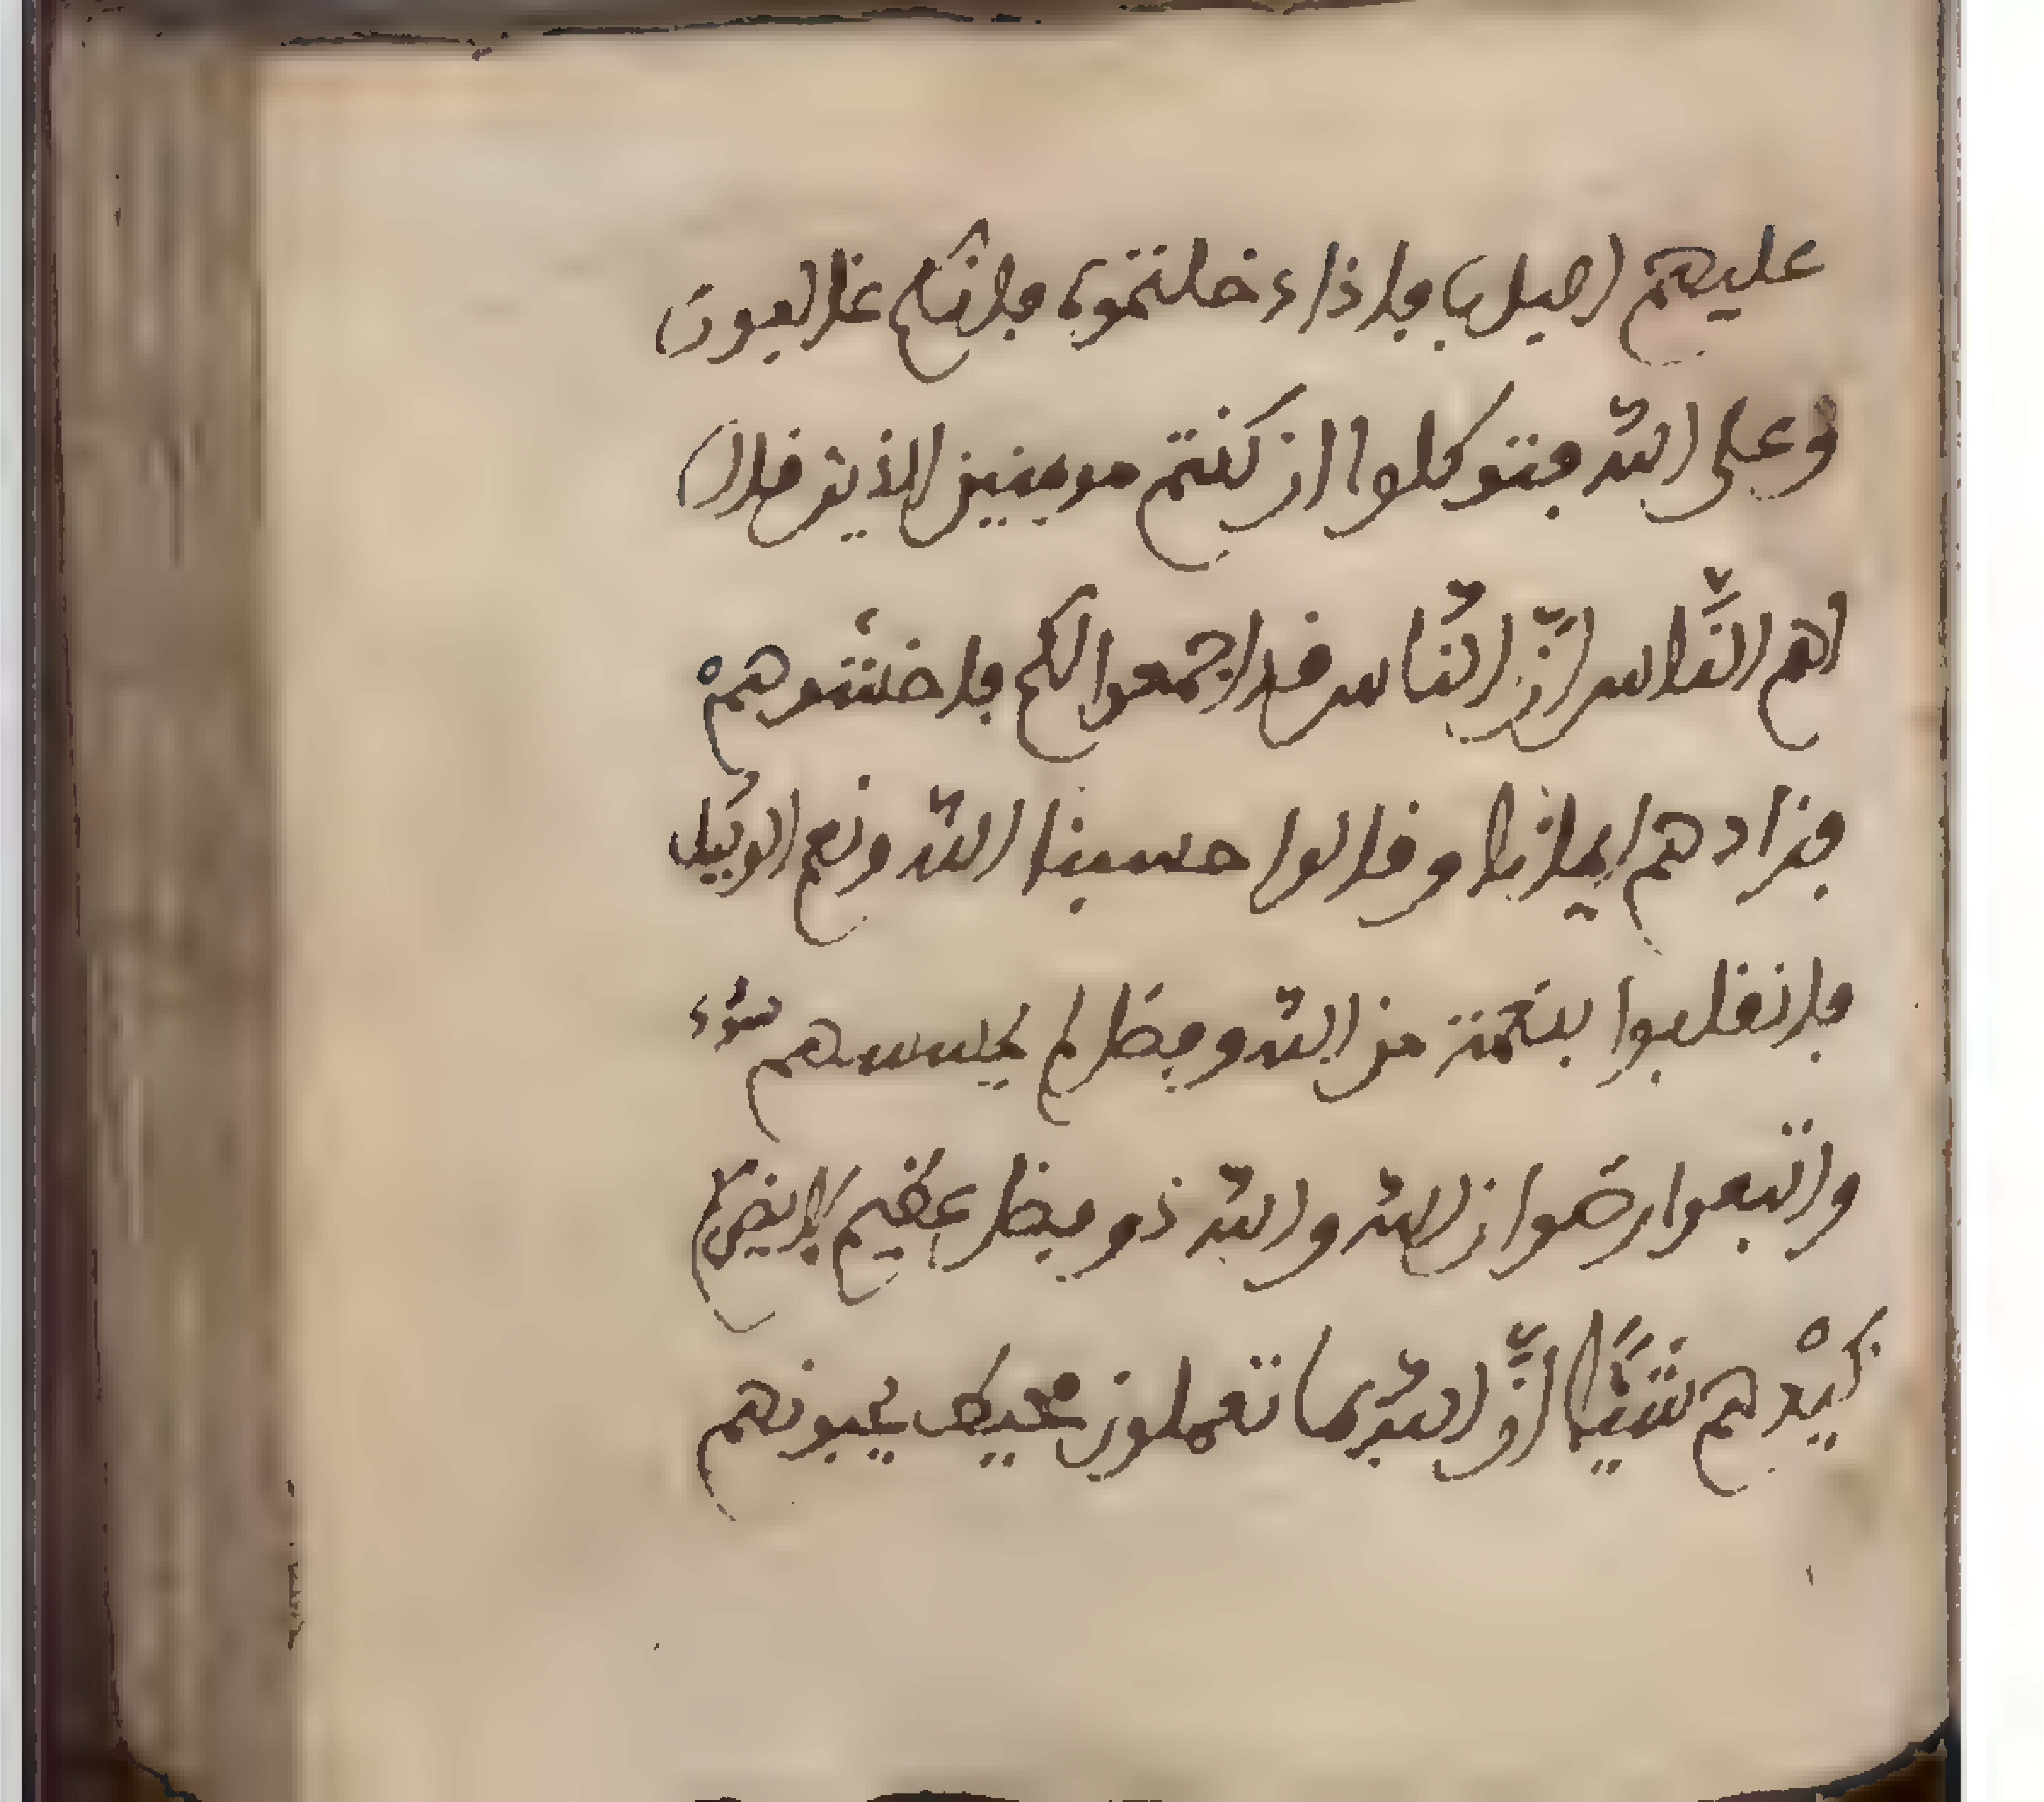 عليهم الباب فإذا دخلتموه فإنكم غالبون
وعلى الله فتوكلوا ان كنتم مومنين الذين قال
لهم النَّاس انَّ النَّاس قد اجمعوا لكم فاخشوهمْ
فزادهم ايمانا وقالوا حسبنا الله ونعم الوكيل
فانقلبوا بنعمة من الله وفضل لم يمسسهم سوء
واتبعوا رضوان الله والله ذو فضل عظيم لا يضركم
كيْدهم شيئًا انَّ الله بما تعملون محيط يحبونهم